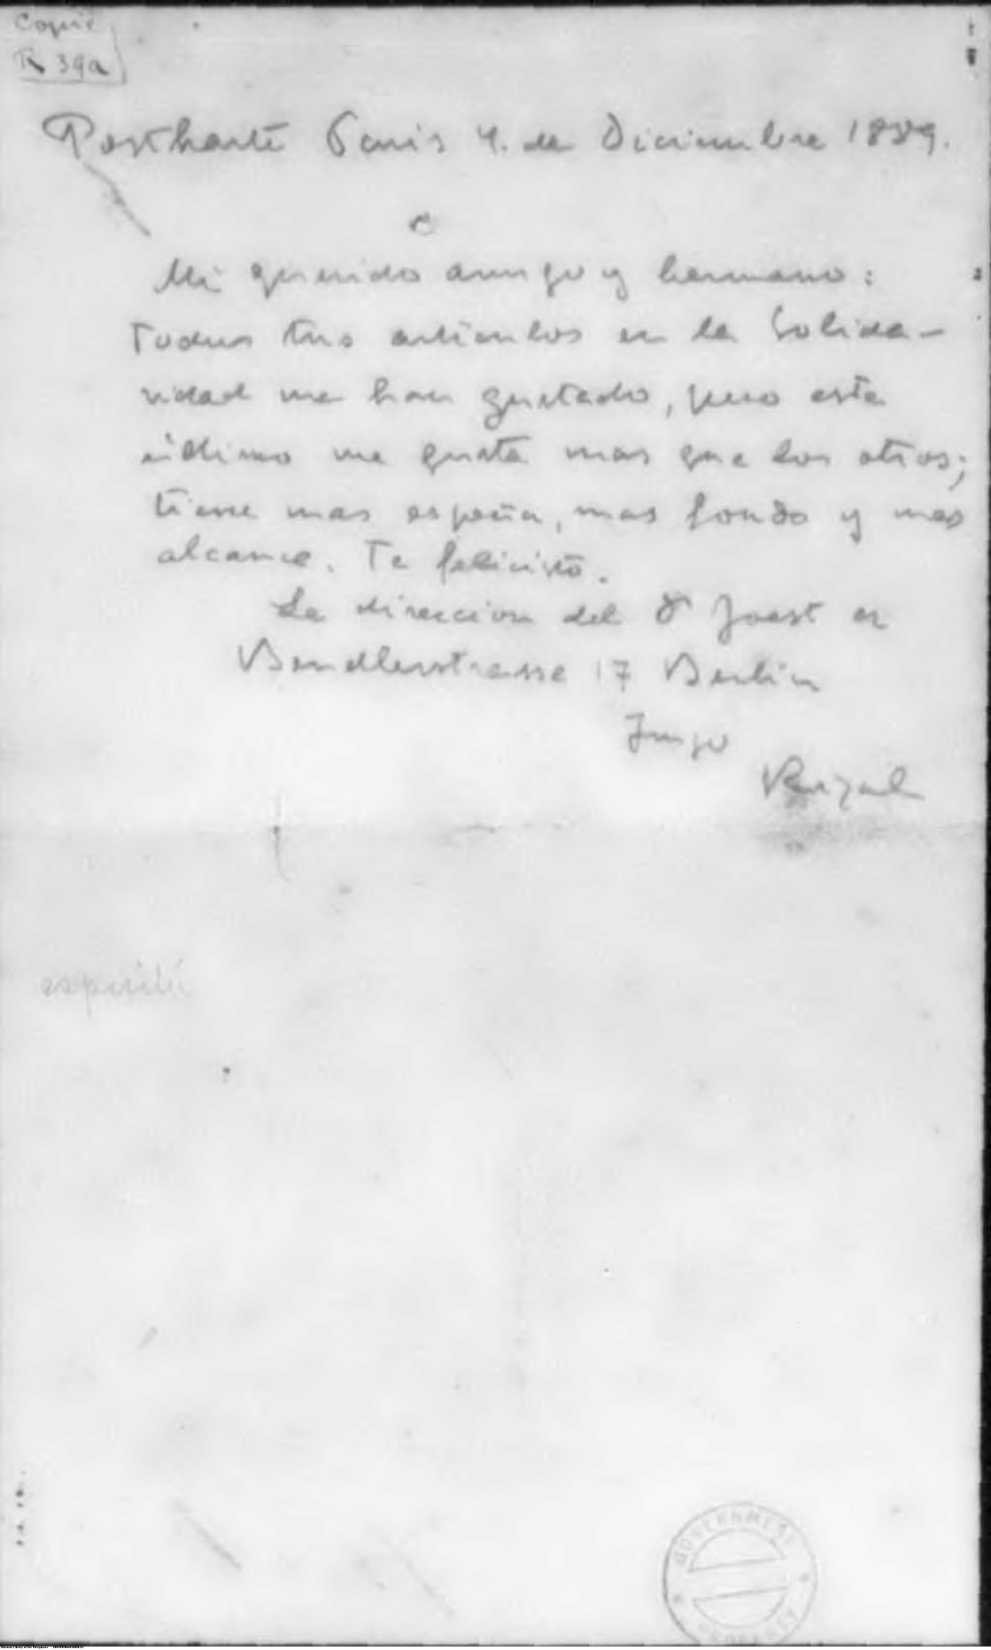 Copie
R 39a
Postkarte Paris 4. de Diciembre 1889.
Mi querido amigo y hermano:
Todos tus articulos en la Solida-
ridad me han gustado, pero este
último me gusta mas que los otros;
tiene mas, mas fondo y mas
alcance. Te felicito.
La direccion del Dr Joest es
Bendlerstrasse 17 Berlin
Tuyo
Rizal
espíritu
GOVERNMENT